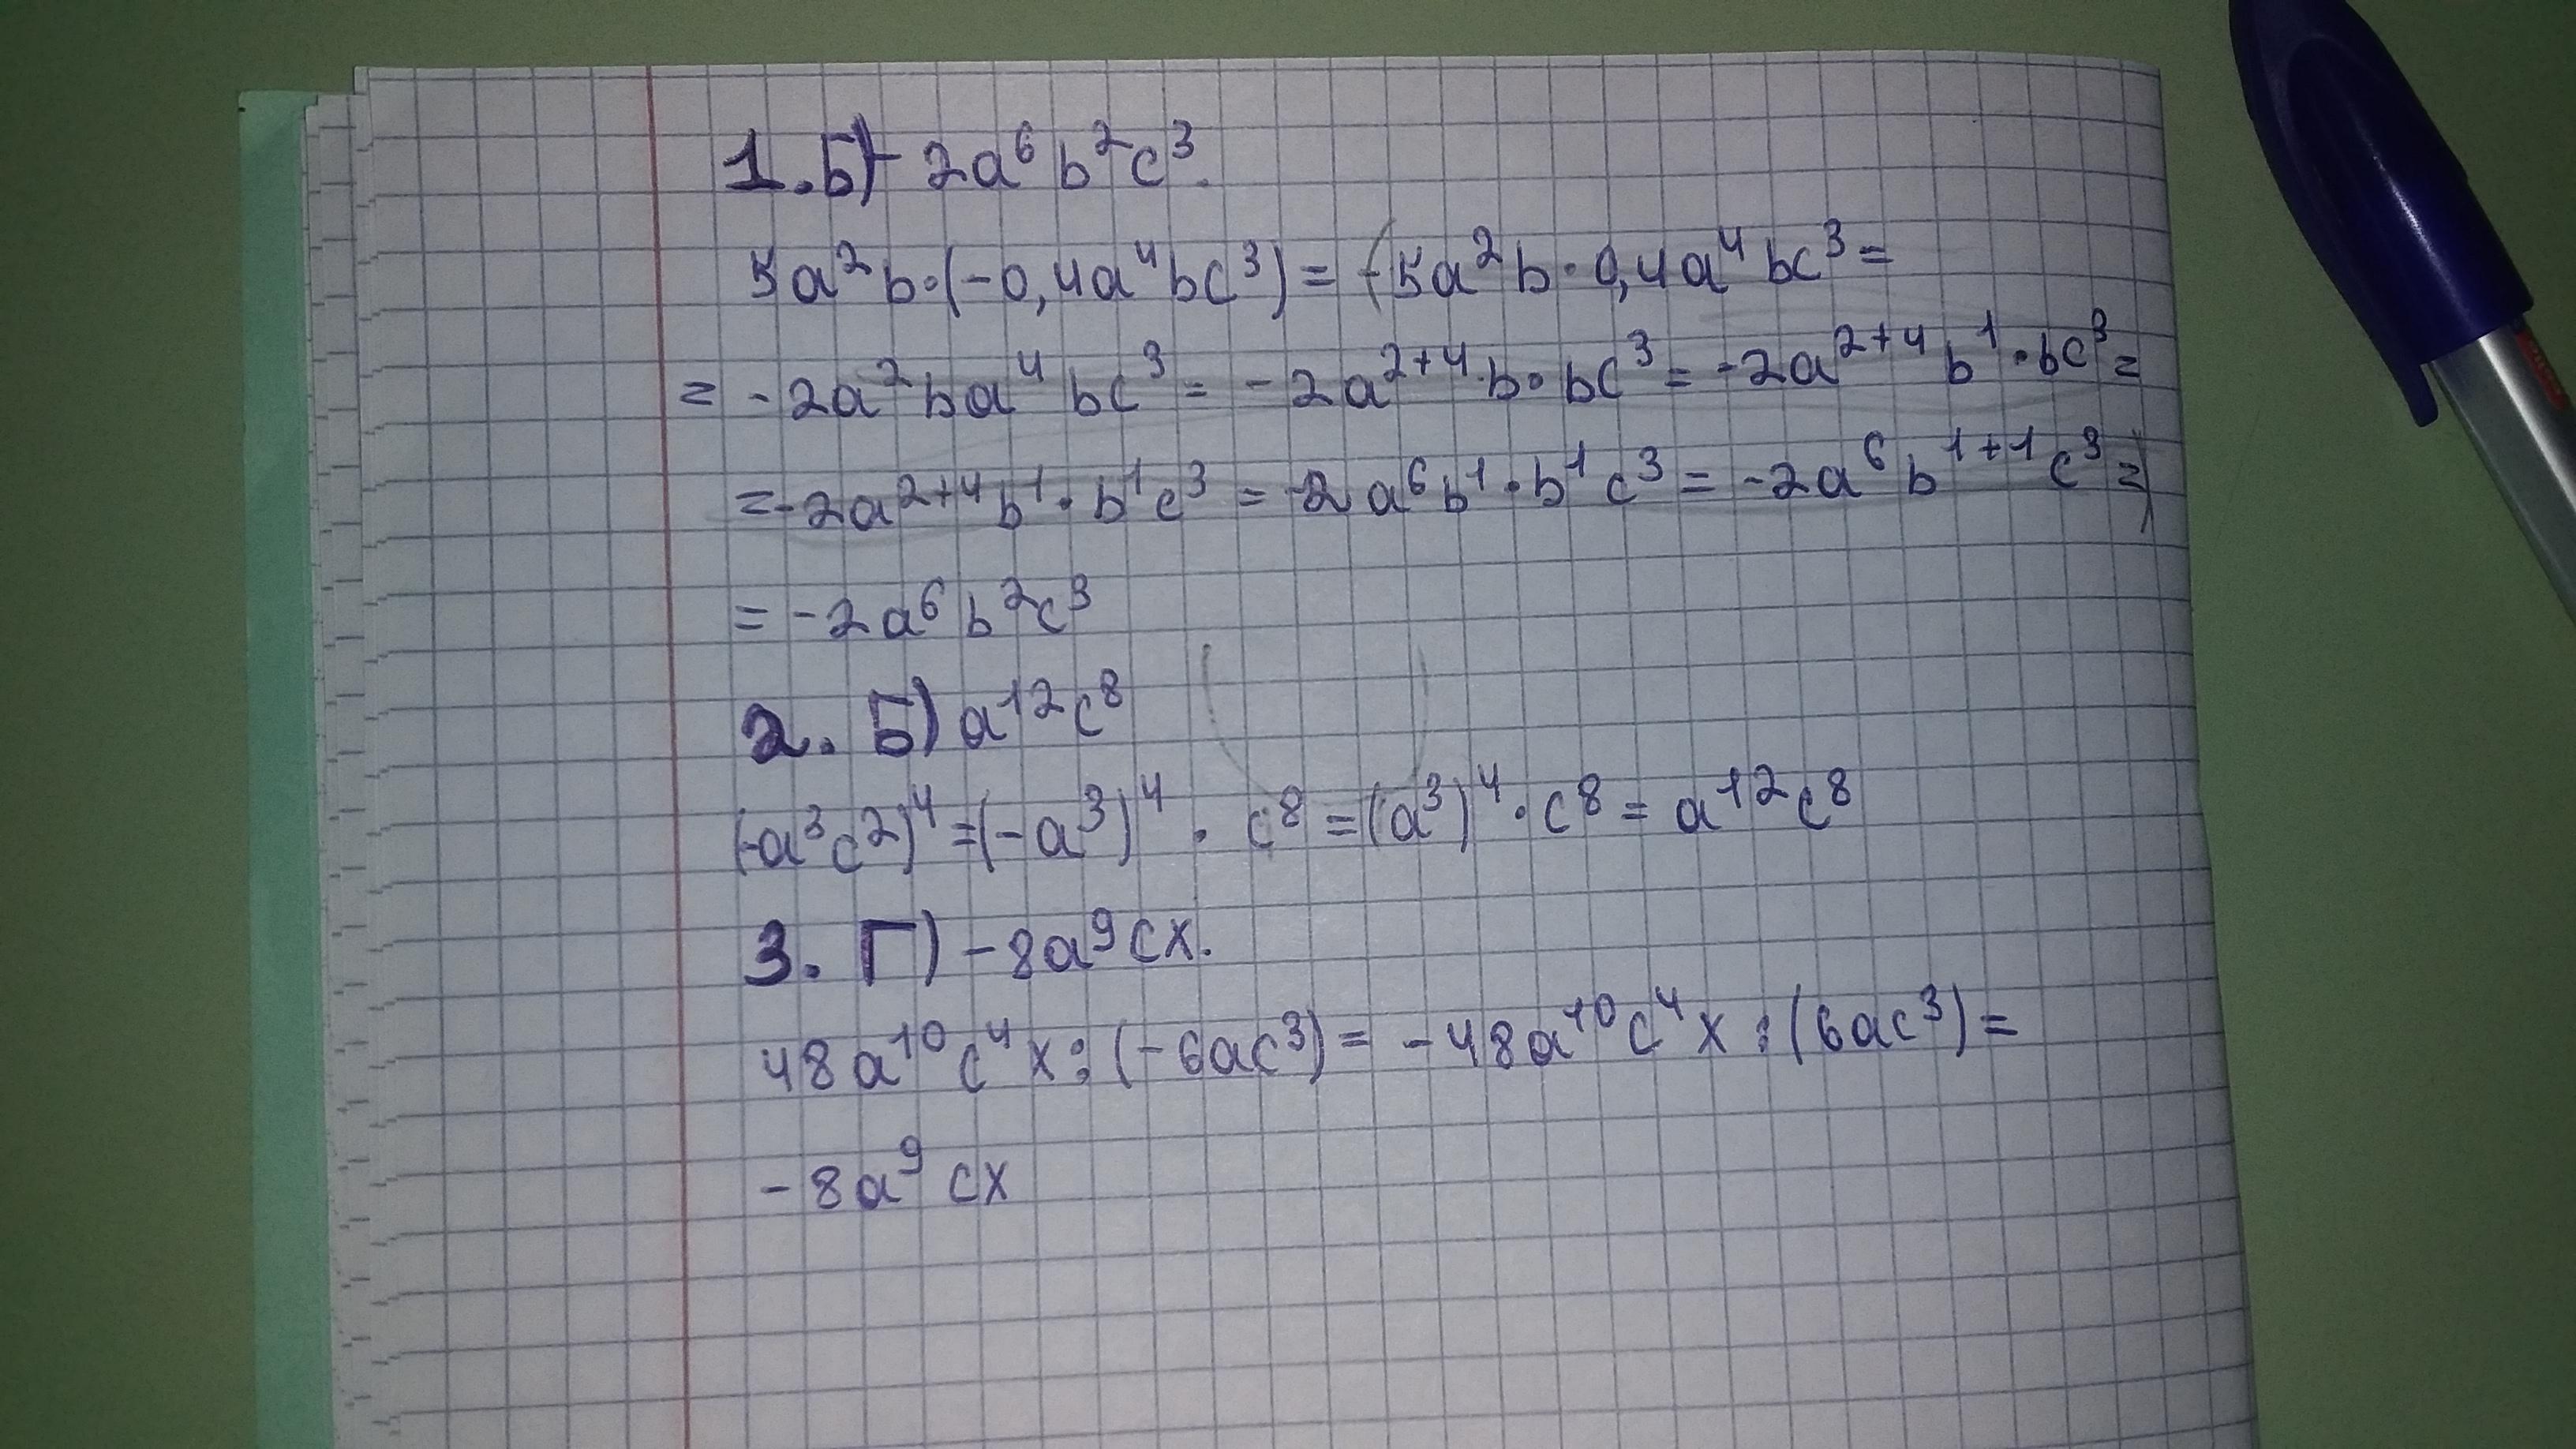 1. Б) - 2a⁶b²c³.
5a²b·(-0,4a⁴bc³) = -5a²b·0,4a⁴bc³ =
= -2a²ba⁴bc³ = -2a²⁺⁴·b·bc³ = -2a²⁺⁴b¹·bc³ =
= -2a²⁺⁴b¹·b¹c³ = -2a⁶b¹·b¹c³ = -2a⁶b¹⁺¹c³ =
= -2a⁶b²c³
2. Б) a¹²c⁸
(-a³c²)⁴ = (-a³)⁴ · c⁸ = (a³)⁴·c⁸ = a¹²c⁸
3. Г) -8a⁹cx.
48a¹⁰c⁴x:(-6ac³) = -48a¹⁰c⁴x:(6ac³) =
-8a⁹cx